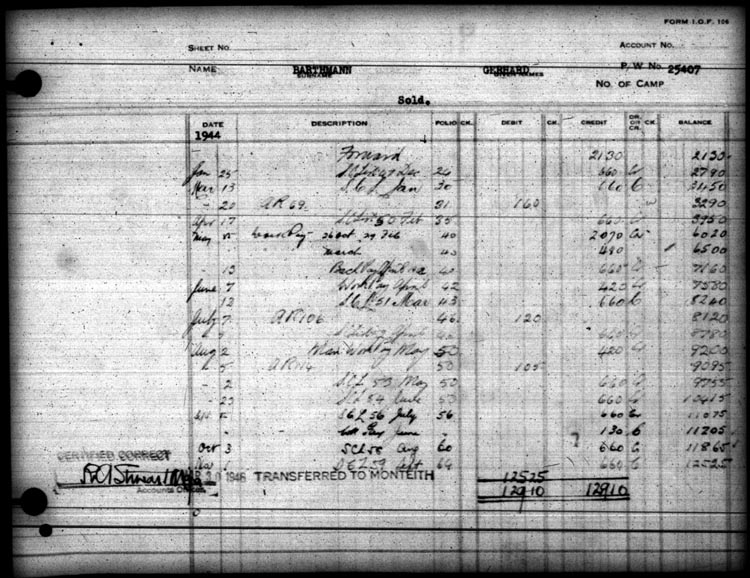 FORM I.O.F. 106
SHEET No. ACCOUNT No.
NAME BARTHMANN GERHARD P. W. No. 25407
SURNAME GIVEN NAMES
No. OF CAMP
Sold.
DATE DESCRIPTION FOLIO CK. DEBIT CK. CREDIT DR. OR CR. CK. BALANCE
1944
Forward 2130 2130
Jan 25 Dec 26 660 Cr 2790
Mar 13 S.C.L. Jan 30 660 C
20 AR 69 31 160 3290
Apr 17 50 Feb 35 660 Cr 3950
May Work Pay Oct Feb 40 2070 Cr 6020
March 40 480 6500
13 Back Pay 660 C 7160
June 7 Work Pay April 42 420 C 7580
12 S.C.L. 51 Mar 43 660 C 8240
July 7 AR 106 46 120 8120
April 660 C 8780
Aug 2 Work Pay May 50 420 C 9200
5 50 105 9095
2 S.C.L. 53 May 50 660 C 9755
23 54 June 53 660 C 10415
5 S.C.L. 56 July 56 660 C 11075
Pay June 130 C 11205
Oct 3 SCL 58 Aug 60 660 C 11865
S.C.L. 59 Sept 64 660 C 12525
CERTIFIED CORRECT
20 1946 TRANSFERRED TO MONTEITH 12525
12910 12910
Accounts Officer